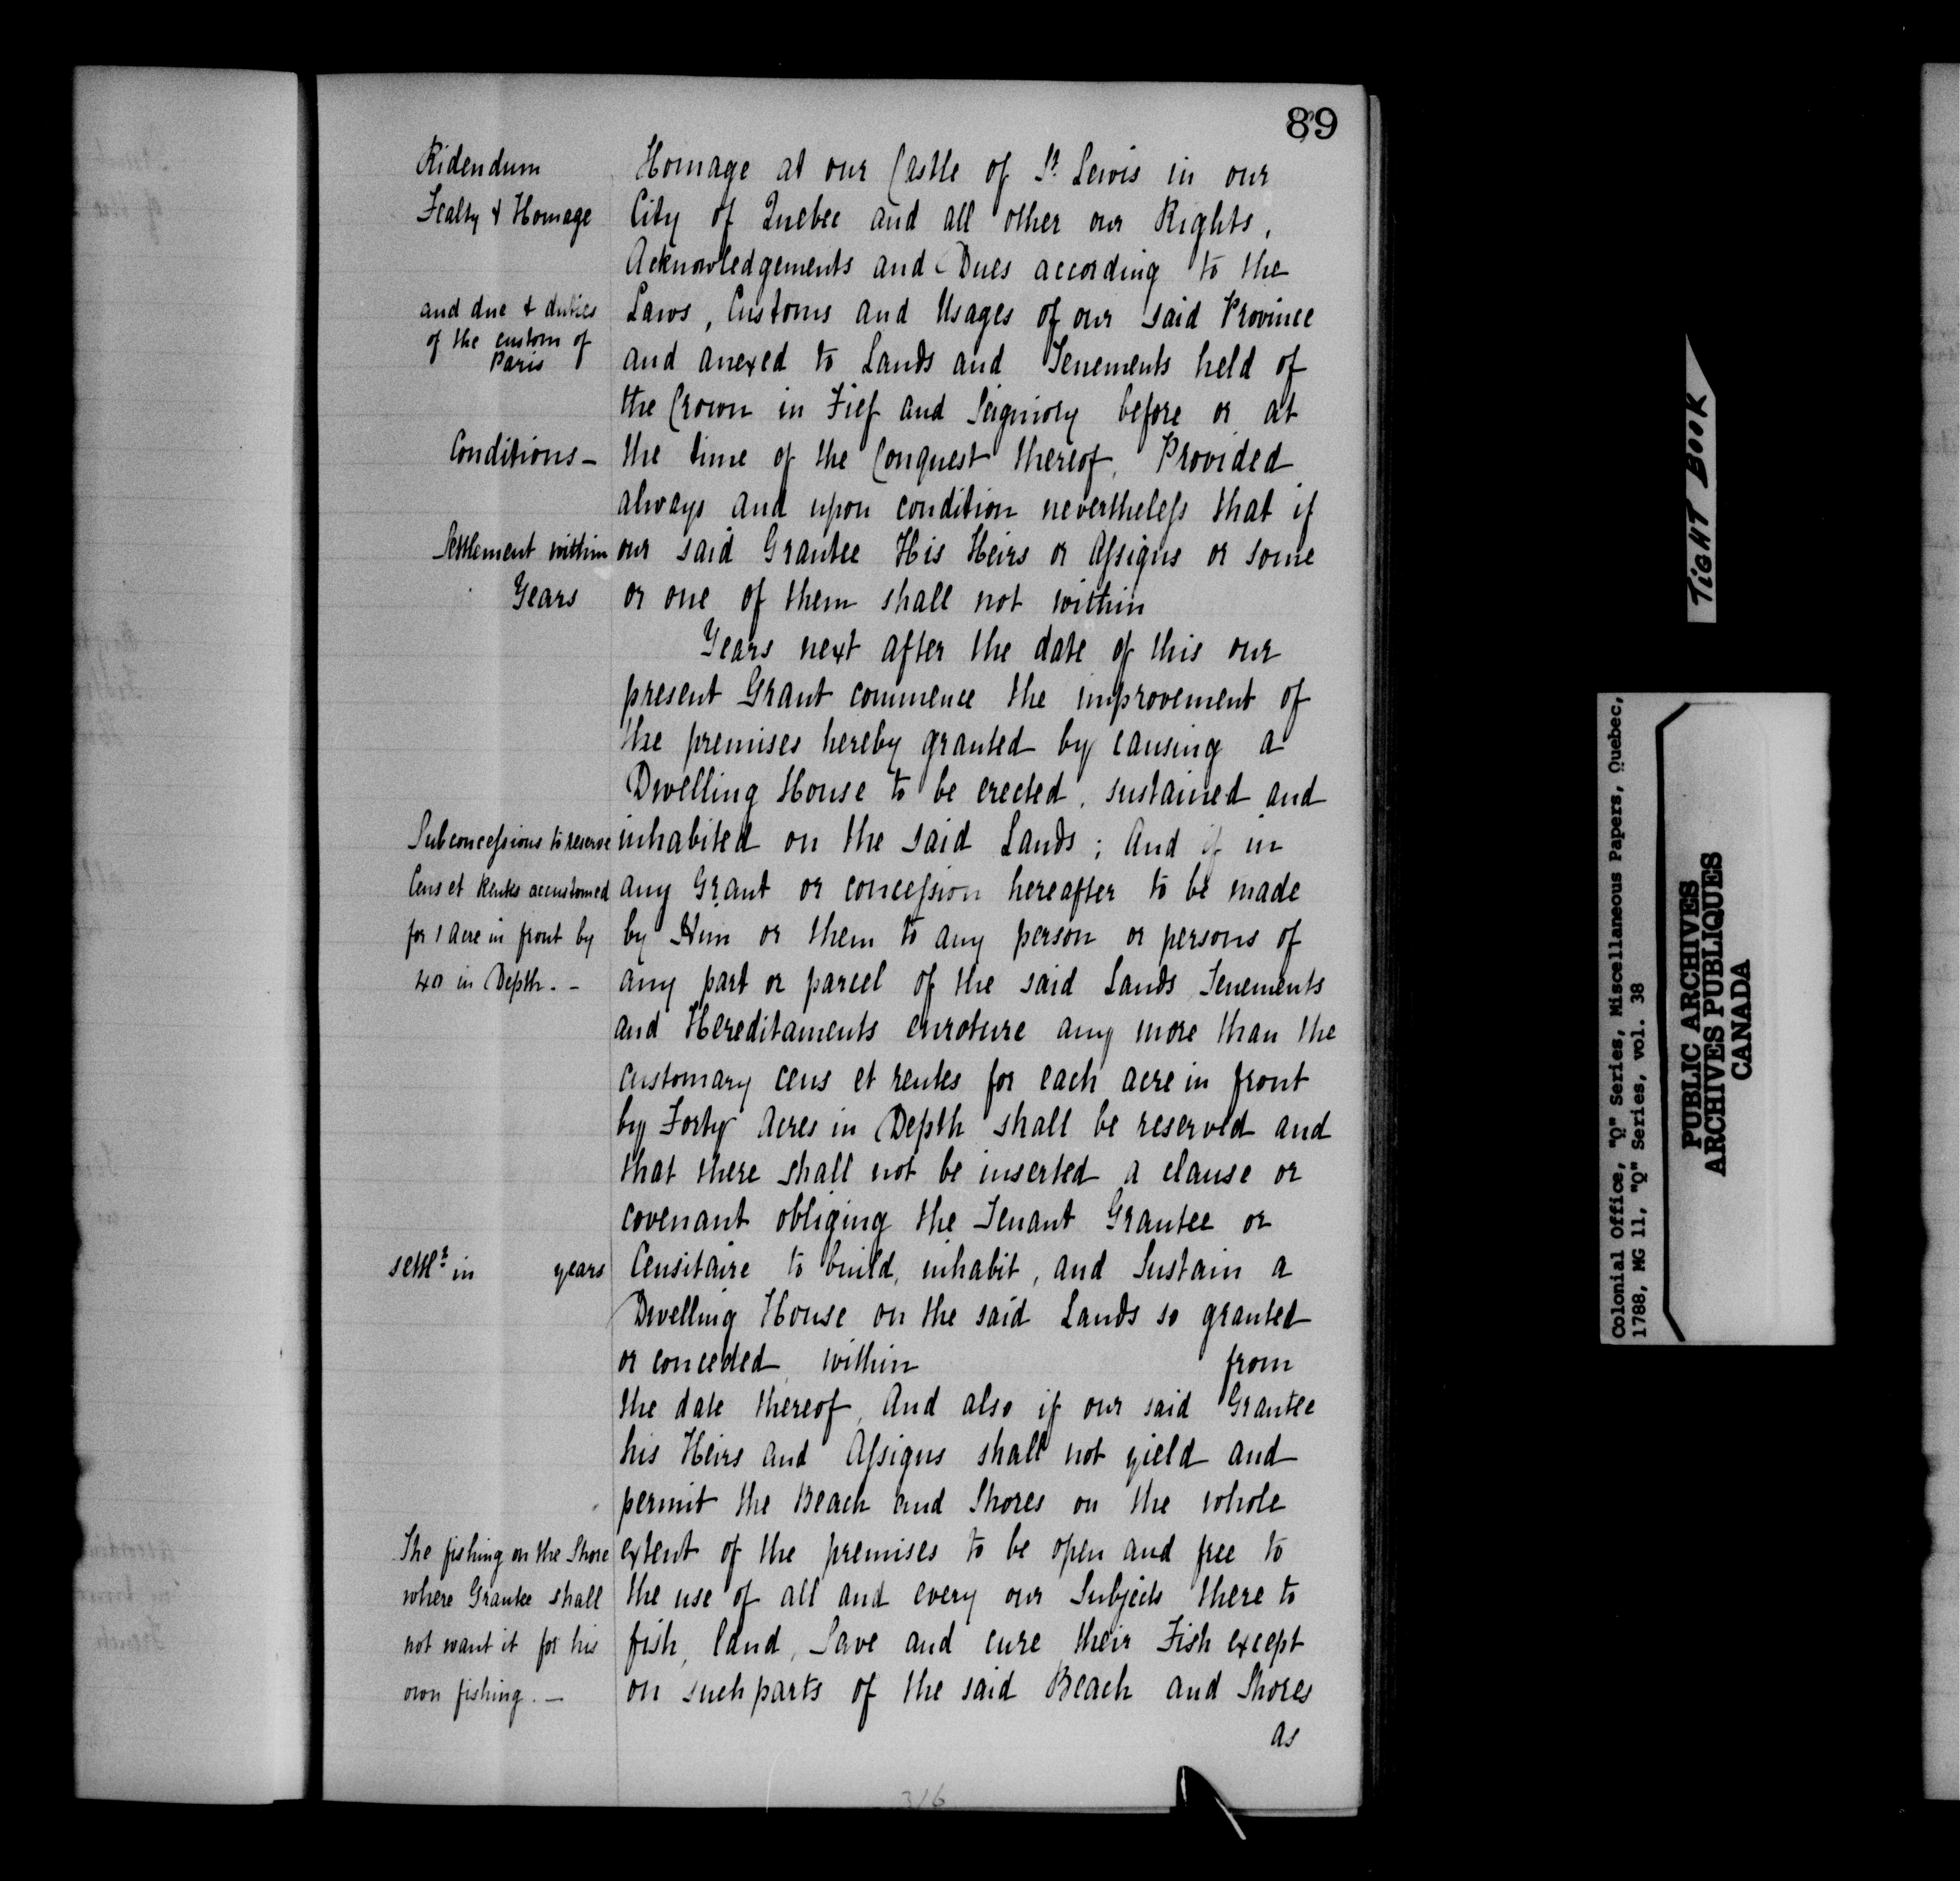 89
Ridendum
Fealty & Homage
and due & duties
of the custom of
Paris
Conditions -
Settlement within
Years
Subconceſsions to reserve
Cens et Rentes accustomed
for 1 Acre in front by
40 in Depth. -
settlt in years
The fishing on the Shore
where Grantee shall
not want it for his
own fishing. -
Homage at our Castle of St Lewis in our
City of Quebec and all other our Rights,
Acknowledgements and Dues according to the
Laws, Customs and Usages of our said Province
and anexed to Lands and Tenements held of
the Crown in Fief and Seigniory before or at
the time of the Conquest thereof. Provided
always and upon condition nevertheleſs that if
our said Grantee His Heirs or Aſsigns or some
or one of them shall not within
Years next after the date of this our
present Grant commence the improvement of
the premises hereby granted by causing a
Dwelling House to be erected, sustained and
inhabited on the said Lands; And if in
any Grant or conceſsion hereafter to be made
by Him or them to any person or persons of
any part or parcel of the said Lands Tenements
and Hereditaments enroture any more than the
customary cens et rentes for each acre in front
by Forty Acres in Depth shall be reserved and
that there shall not be inserted a clause or
covenant obliging the Tenant Grantee or
Censitaire to build, inhabit, and Sustain a
Dwelling House on the said Lands so granted
or conceded within from
the date thereof, And also if our said Grantee
his Heirs and Aſsigns shall not yield and
permit the Beach and Shores on the whole
extent of the premises to be open and free to
the use of all and every our Subjects there to
fish, land, Save and cure their Fish except
on such parts of the said Beach and Shores
as
316
TIGHT BOOK
Colonial Office, "Q" Series, Miscellaneous Papers, Quebec,
1788, MG 11, "Q" Series, vol. 38
PUBLIC ARCHIVES
ARCHIVES PUBLIQUES
CANADA